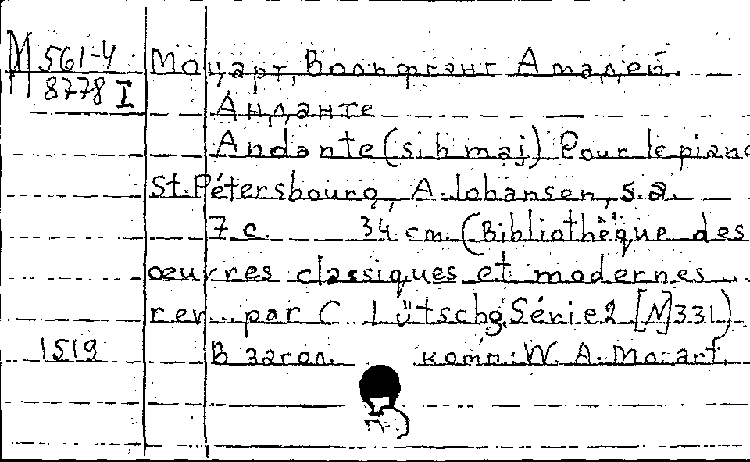 М 561-4 Моцарт, Вольфганг Амадей.
8778 I
Анданте
Andante (si b maj) Pour le piano
St.Pétersbourg, A. Johansen, s.a.
7 с. 34 cm. (Bibliothèque des
œuvres classiques et modernes...
rev. par C. Lütschg. Série 2 [N]331)
1519 В загол. комп: W. A. Mozart.